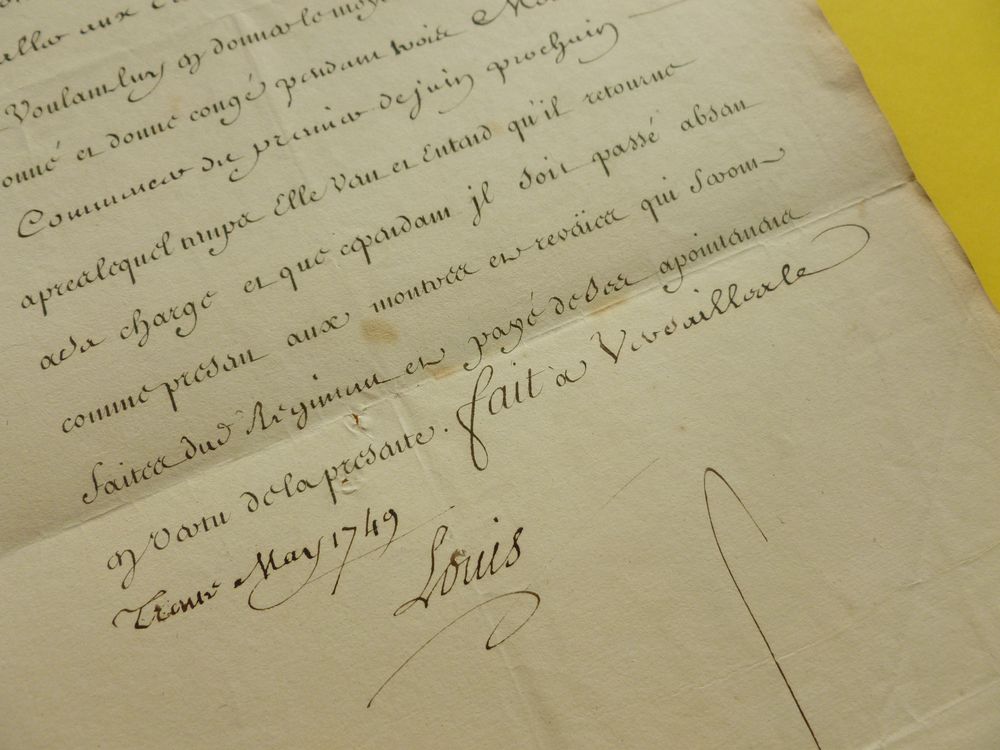 aller aux
Voulant luy donner le moy
onné et donne congé pendant trois Mo
Commencer du premier de juin prochain
apres lequel temps Elle Veut et Entend qu'il retourne
a sa charge et que cependant jl soit passé absent
comme present aux montres et reveües qui seront
faites dud Regiment et payé de ses apointemens
en Vertu de la presente. fait à Versailles le
Trente May 1749
Louis